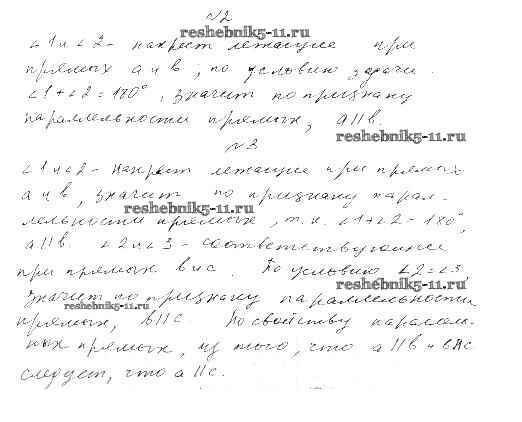 №2
reshebnik5-11.ru
∠1 и ∠2 - накрест лежащие при
прямых a и b, по условию задачи
∠1+∠2=180°, значит по признаку
параллельности прямых, a||b.
reshebnik5-11.ru
№3
∠1 и ∠2 - накрест лежащие при прямых
a и b, значит по признаку парал-
reshebnik5-11.ru
лельности прямых, т.к. ∠1+∠2=180°,
a||b. ∠2 и ∠3 - соответствующие
при прямых b и c. По условию ∠2=∠3,
reshebnik5-11.ru
значит по признаку параллельности
reshebnik5-11.ru
прямых, b||c. По свойству параллель-
ных прямых, из того, что a||b и b||c
следует, что a||c.